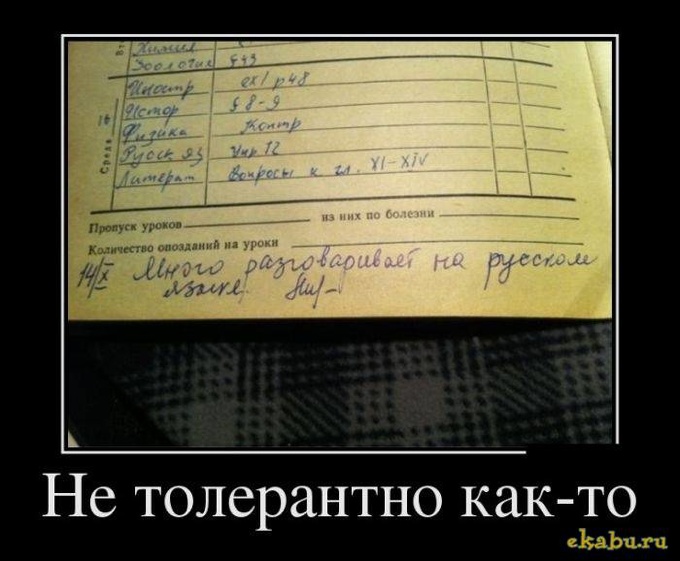 Вт
Химия
Зоология §43
Среда 14
Иностр ex1 p48
Истор § 8-9
Физика Контр
Русск яз Упр. 12
Литерат Вопросы к гл. XI-XIV
Пропуск уроков из них по болезни
Количество опозданий на уроки
14/X Много разговаривает на русском
языке.
Не толерантно как-то
ekabu.ru